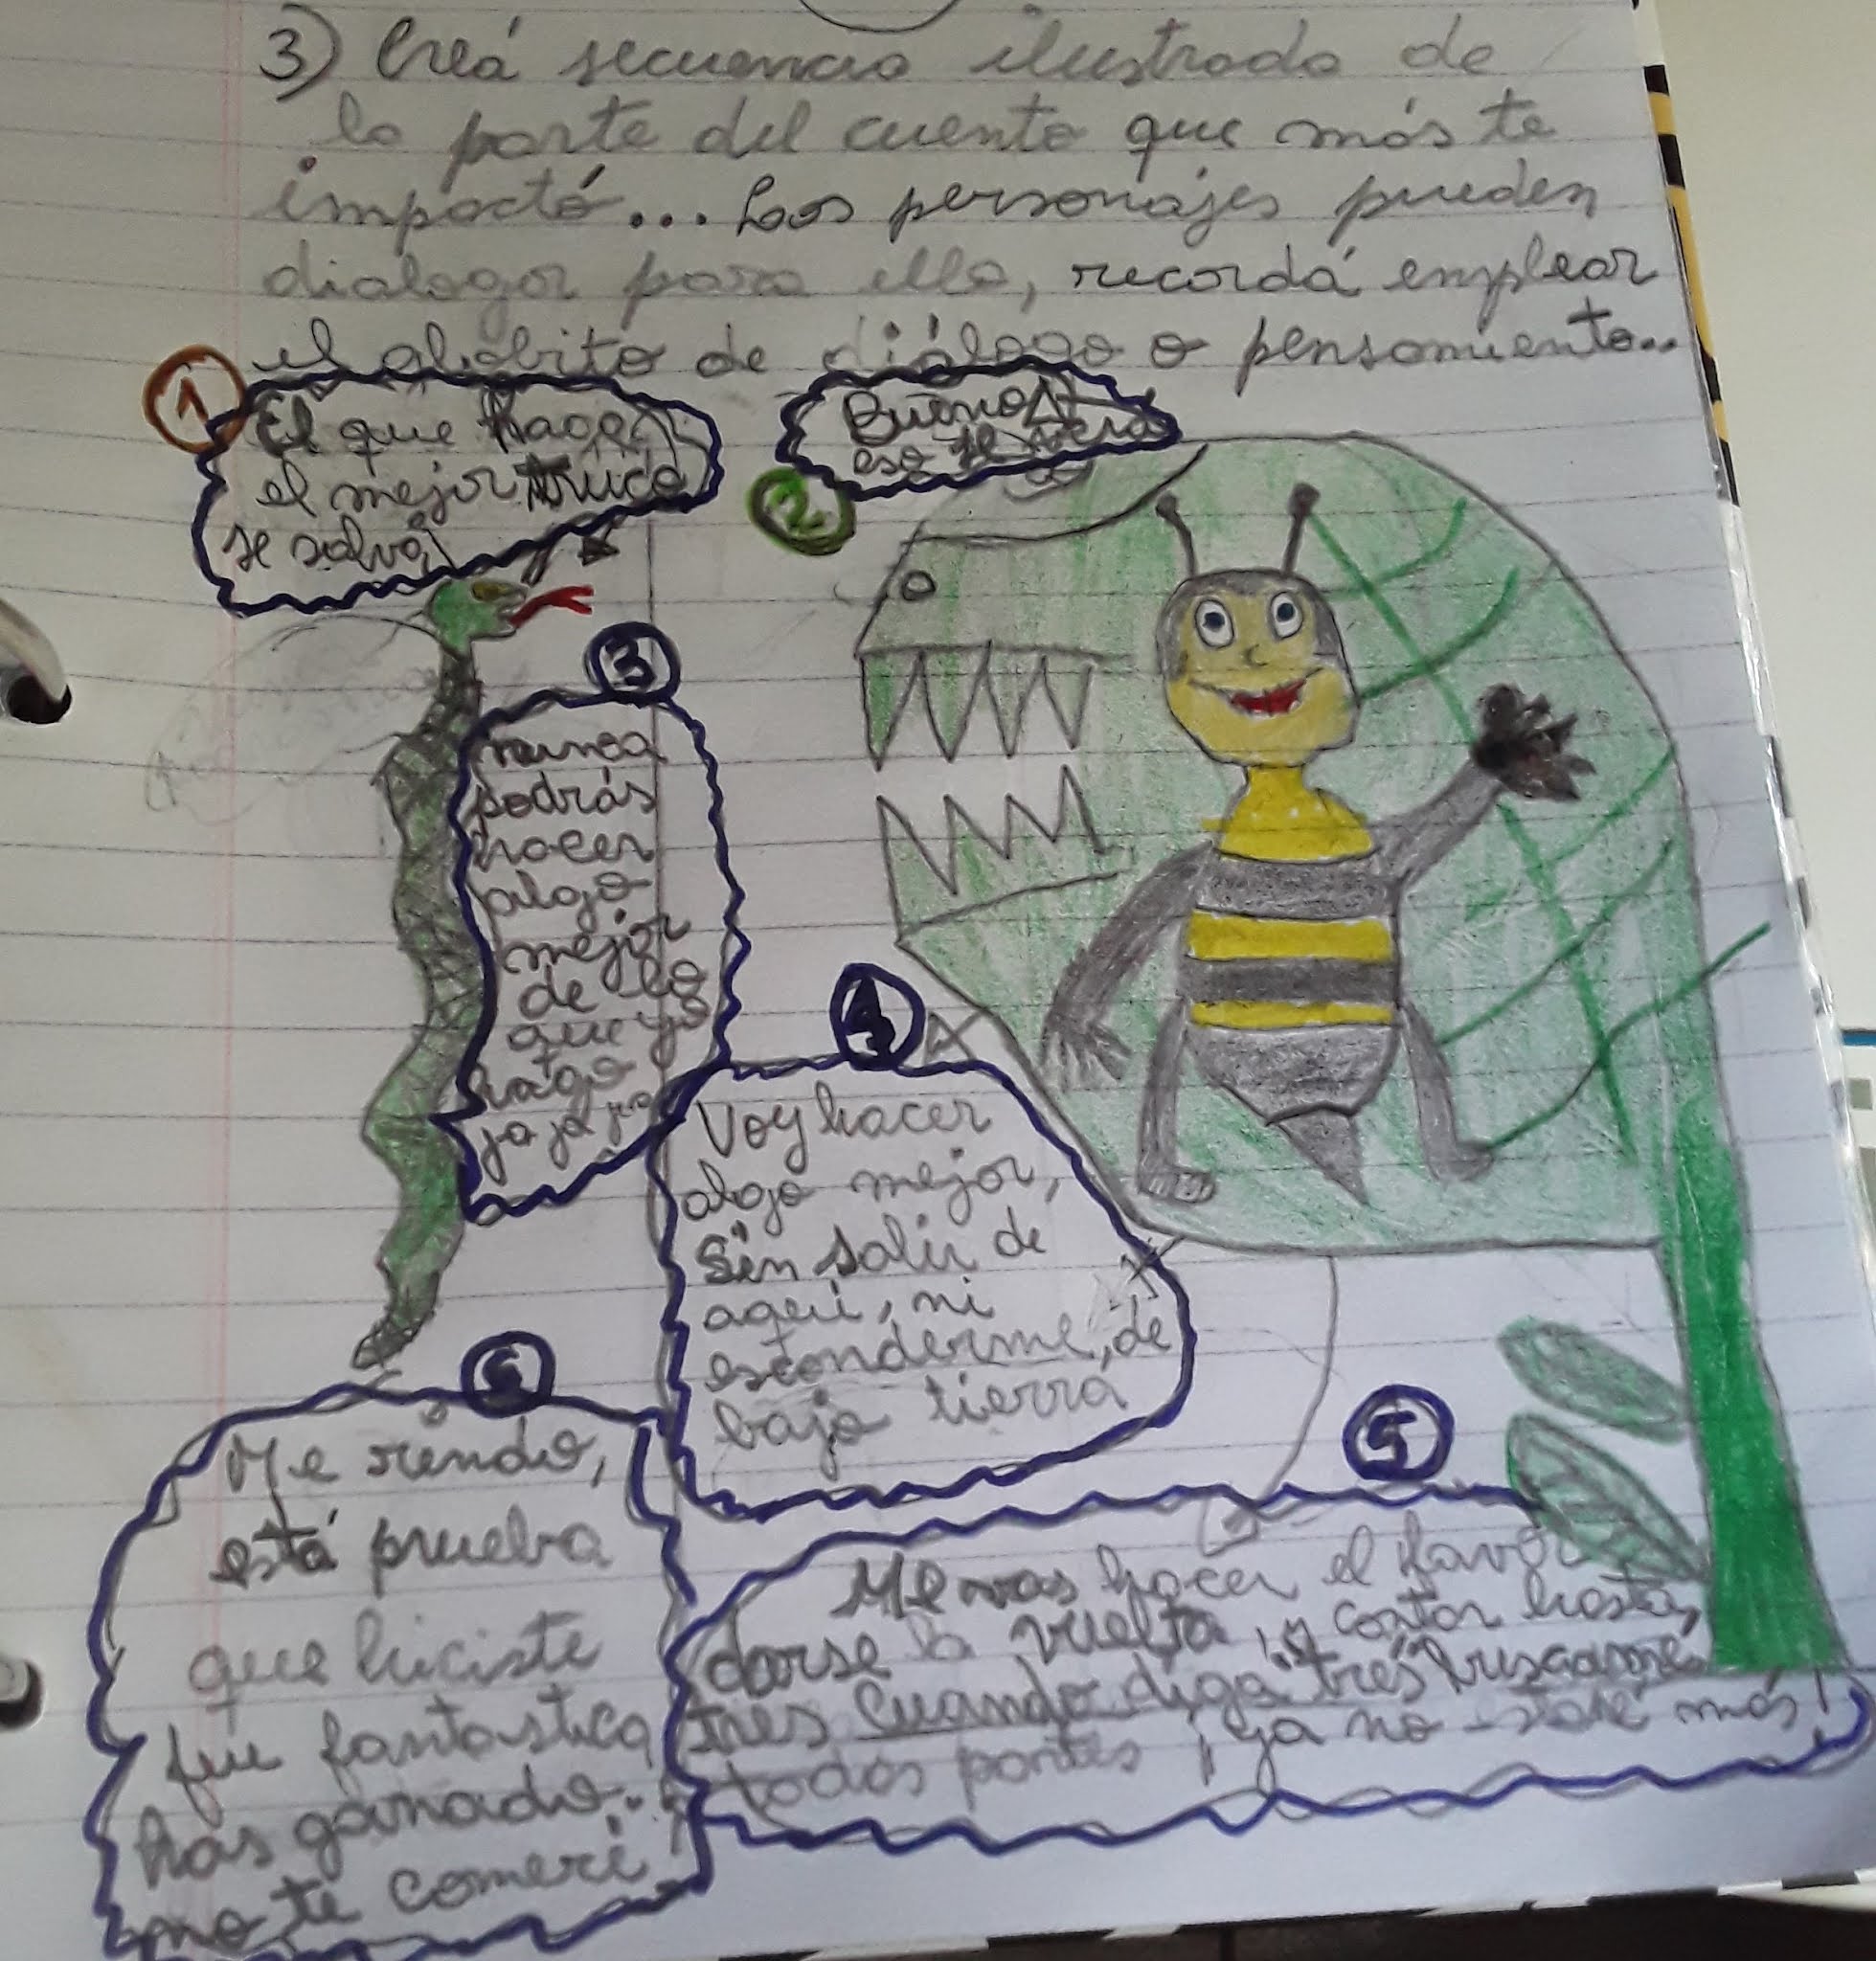 3) Creá secuencia ilustrada de
la parte del cuento que más te
impactó... Los personajes pueden
dialogar para ello, recordá emplear
el globito de diálogo o pensamiento...
1
El que hace
el mejor truco
se salva
2
Bueno
eso se verá
3
nunca
podrás
hacer
algo
mejor
de lo
que yo
hago
ja ja ja
4
Voy hacer
algo mejor,
Sin salir de
aquí, ni
esconderme, de
bajo tierra
5
Me vas hacer el favor
darse la vuelta, y contar hasta
tres Cuando diga "tres" buscame
todas partes ¡ya no estaré más!
6
Me rindo,
está prueba
que hiciste
fue fantastica
has ganado..
no te comeré